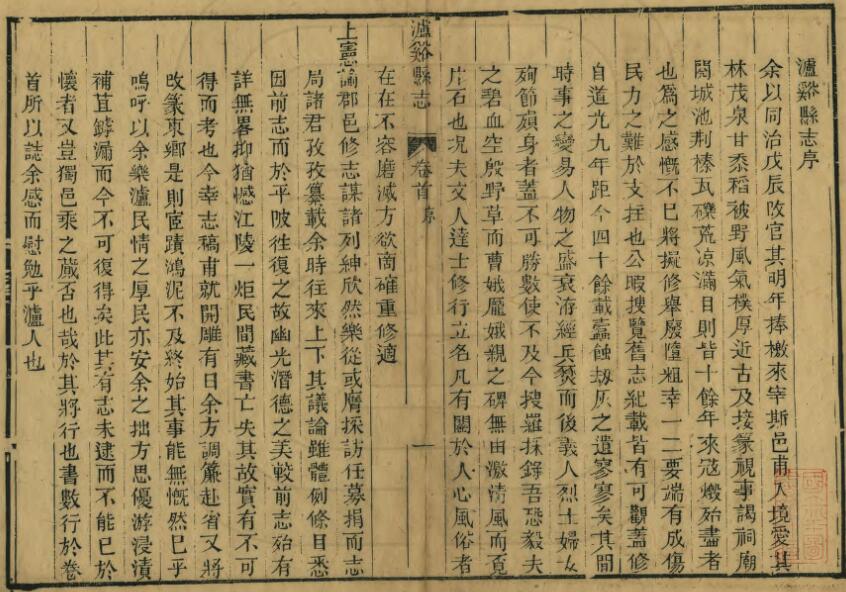 瀘谿縣志序
余以同治戊辰改官其明年捧檄來宰斯邑甫入境愛其
林茂泉甘黍稻被野風氣樸厚近古及接篆視事謁祠廟
閱城池荆榛瓦礫荒凉滿目則皆十餘年來寇燬殆盡者
也為之感慨不巳將擬修舉廢墮粗幸一二要端有成傷
民力之難於支拄也公暇搜覽舊志紀載皆有可觀蓋修
自道光九年距今四十餘載蠹蝕刼灰之遺寥寥矣其間
時事之變易人物之盛衰洊經兵燹而後義人烈士婦女
殉節殞身者蓋不可勝數使不及今搜羅採錄吾恐毅夫
之碧血空殷野草而曹娥龐娥親之碑無由激清風而覔
片石也况夫文人達士修行立名凡有關於人心風俗者
瀘谿縣志 卷首 序 一
在在不容磨滅方欲啇確重修適
上憲諭郡邑修志謀諸列紳欣然樂從或膺採訪任募捐而志
局諸君孜孜纂載余時往來上下其議論雖體例條目悉
因前志而於平陂徃復之故幽光潛德之美較前志殆有
詳無畧抑猶憾江陵一炬民間藏書亡失其故實有不可
得而考也今幸志稿甫就開雕有日余方調簾赴省又將
改篆東鄉是則宦蹟鴻泥不及終始其事能無慨然巳乎
嗚呼以余樂瀘民情之厚民亦安余之拙方思優游浸漬
補苴罅漏而今不可復得矣此其有志未逮而不能巳於
懷者又豈獨邑乘之蕆否也哉於其將行也書數行於卷
首所以誌余感而慰勉乎瀘人也